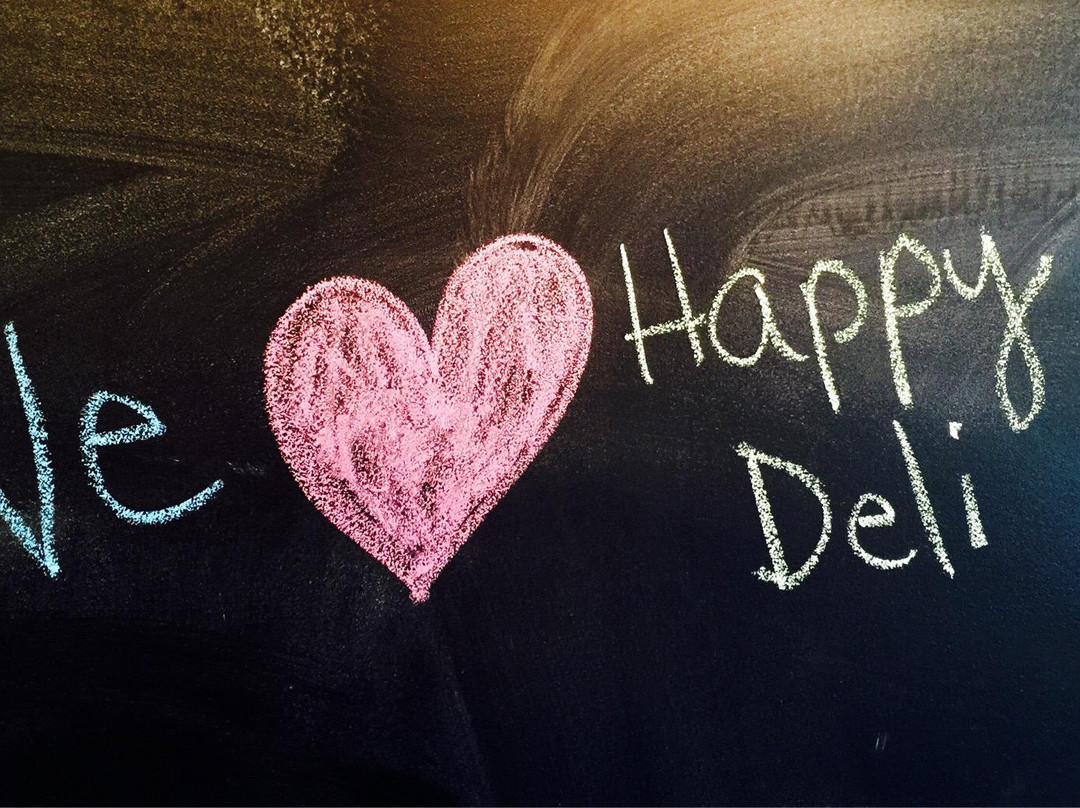 We ♥ Happy
Deli